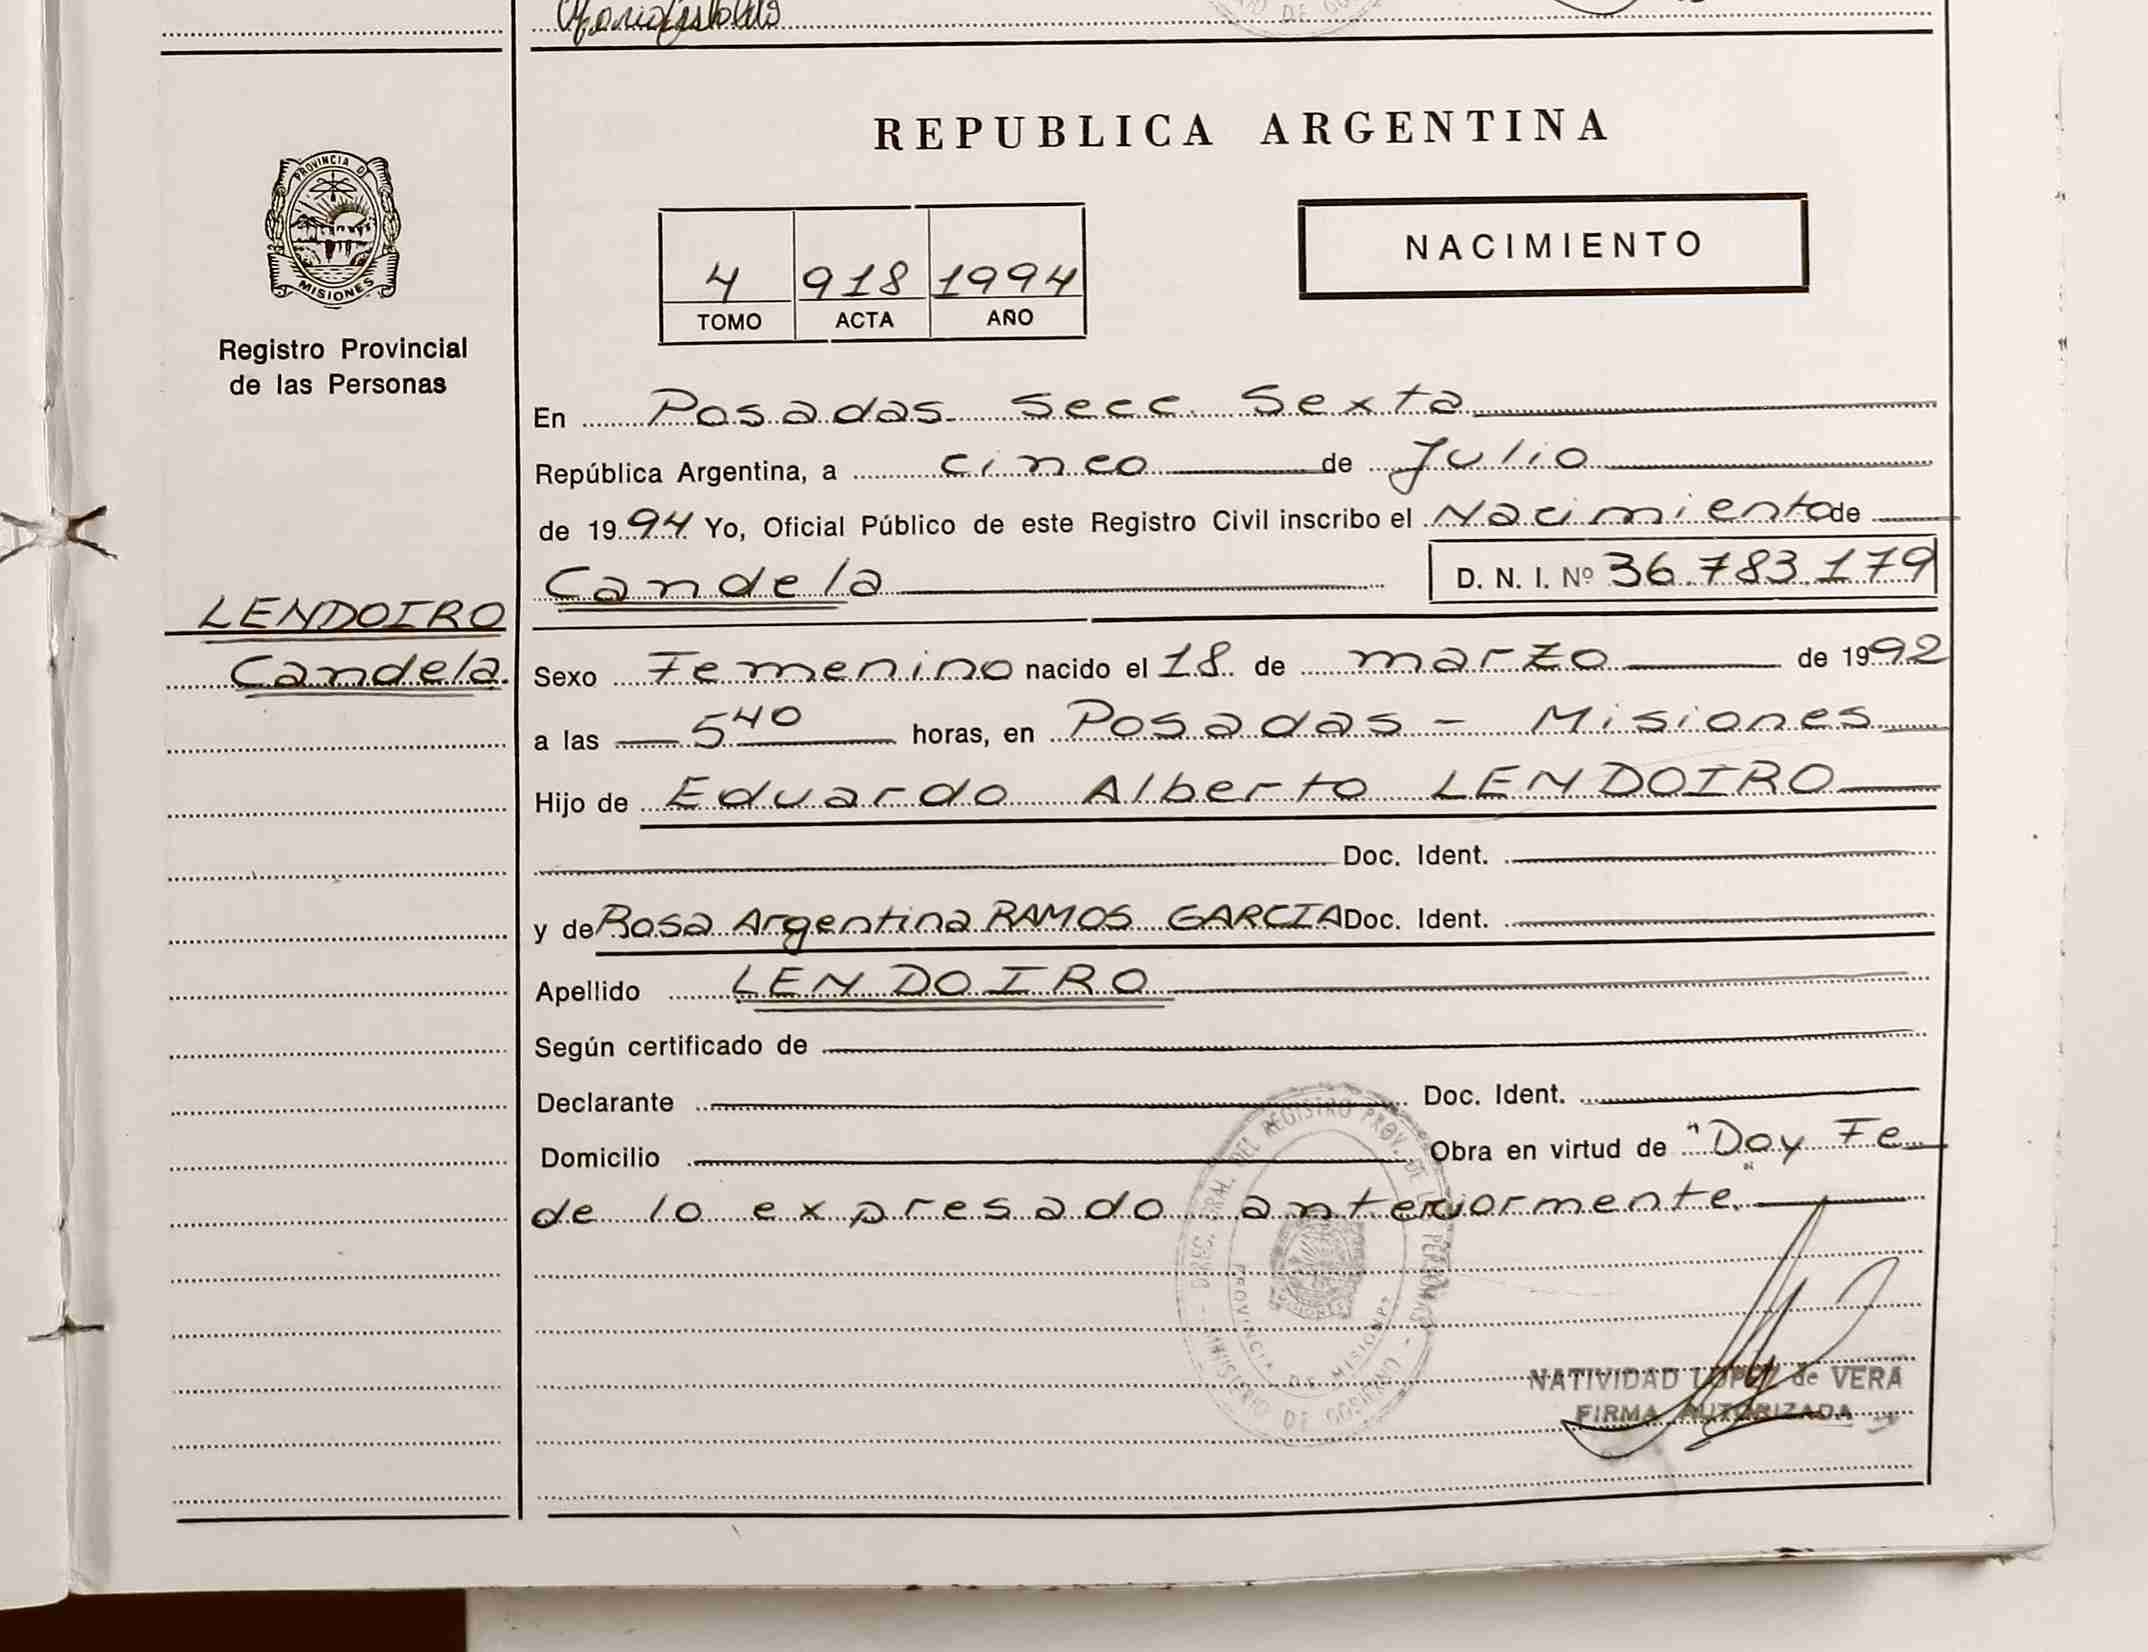 PROVINCIA DE
MISIONES
Registro Provincial
de las Personas
LENDOIRO
Candela
REPUBLICA ARGENTINA
NACIMIENTO
4 918 1994
TOMO ACTA AÑO
En Posadas Secc. Sexta
República Argentina, a cinco de Julio
de 1994 Yo, Oficial Público de este Registro Civil inscribo el Nacimiento de
Candela D. N. I. Nº 36.783.179
Sexo Femenino nacido el 18 de marzo de 1992
a las 5 40 horas, en Posadas - Misiones
Hijo de Eduardo Alberto LENDOIRO
Doc. Ident.
y de Rosa Argentina RAMOS GARCIA Doc. Ident.
Apellido LENDOIRO
Según certificado de
Declarante Doc. Ident.
Domicilio Obra en virtud de "Doy Fe"
de lo expresado anteriormente.
DEL REGISTRO PROV. DE
PROVINCIA DE MISIONES
MINISTERIO DE GOBIERNO
NATIVIDAD LOPEZ de VERA
FIRMA AUTORIZADA